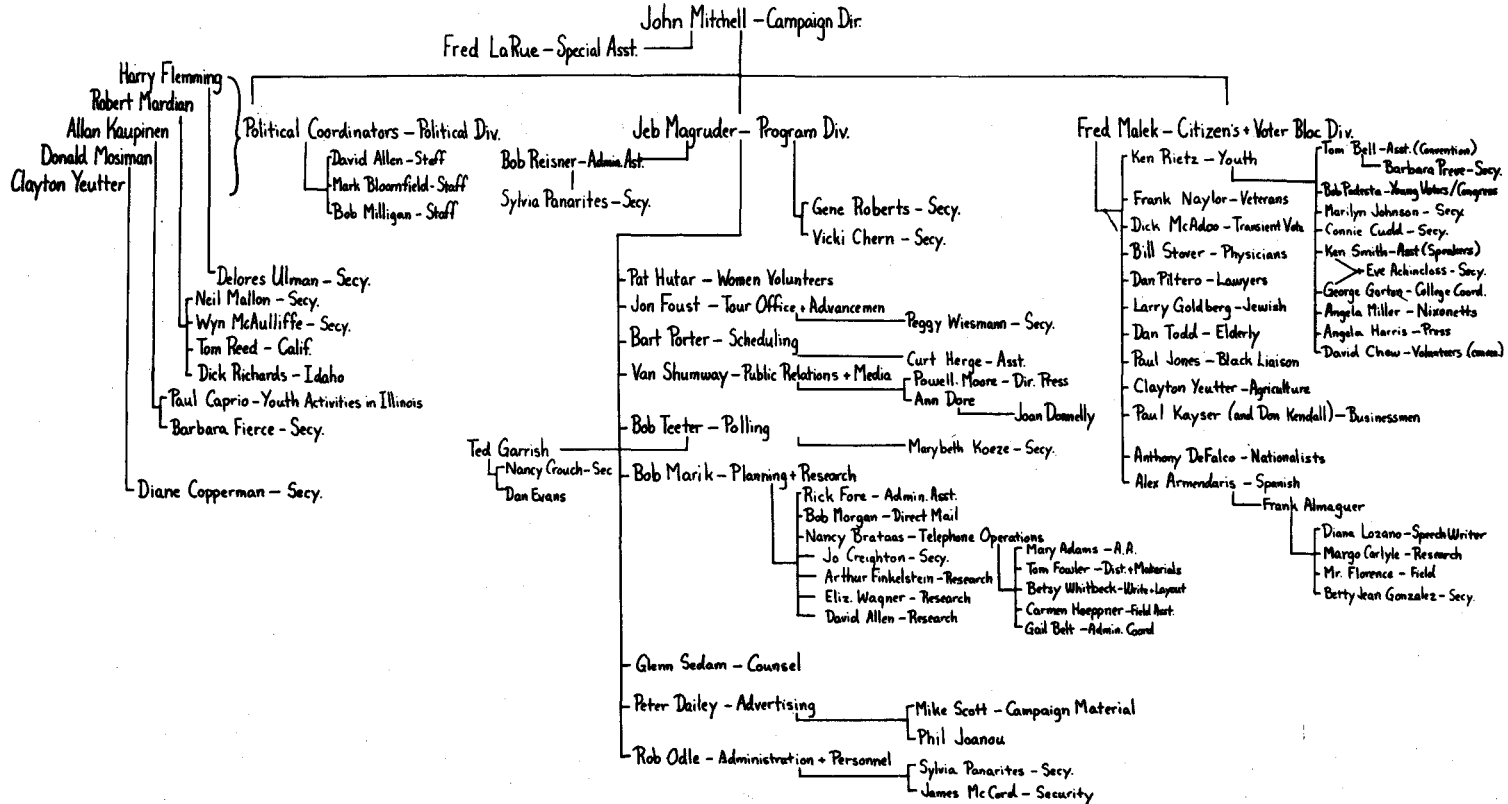 John Mitchell – Campaign Dir.
Fred LaRue – Special Asst.
Harry Flemming
Robert Mardian
Allan Kaupinen
Donald Mosiman
Clayton Yeutter
Political Coordinators – Political Div.
David Allen – Staff
Mark Bloomfield – Staff
Bob Milligan – Staff
Delores Ulman – Secy.
Neil Mallon – Secy.
Wyn McAulliffe – Secy.
Tom Reed – Calif.
Dick Richards – Idaho
Paul Caprio – Youth Activities in Illinois
Barbara Fierce – Secy.
Diane Copperman – Secy.
Jeb Magruder – Program Div.
Bob Reisner – Admin. Ast.
Sylvia Panarites – Secy.
Gene Roberts – Secy.
Vicki Chern – Secy.
Pat Hutar – Women Volunteers
Jon Foust – Tour Office + Advancemen
Peggy Wiesmann – Secy.
Bart Porter – Scheduling
Curt Herge – Asst.
Van Shumway – Public Relations + Media
Powell Moore – Dir. Press
Ann Dore
Joan Donnelly
Bob Teeter – Polling
Marybeth Koeze – Secy.
Ted Garrish
Nancy Crouch – Sec
Dan Evans
Bob Marik – Planning + Research
Rick Fore – Admin. Asst.
Bob Morgan – Direct Mail
Nancy Brataas – Telephone Operations
Jo Creighton – Secy.
Arthur Finkelstein – Research
Eliz. Wagner – Research
David Allen – Research
Mary Adams – A.A.
Tom Fowler – Dist. + Materials
Betsy Whitbeck – Write + Layout
Carmen Hoeppner – Field Asst.
Gail Belt – Admin. Coord
Glenn Sedam – Counsel
Peter Dailey – Advertising
Mike Scott – Campaign Material
Phil Joanou
Rob Odle – Administration + Personnel
Sylvia Panarites – Secy.
James McCord – Security
Fred Malek – Citizen's + Voter Bloc Div.
Ken Rietz – Youth
Frank Naylor – Veterans
Dick McAdoo – Transient Vote
Bill Stover – Physicians
Dan Piltero – Lawyers
Larry Goldberg – Jewish
Dan Todd – Elderly
Paul Jones – Black Liaison
Clayton Yeutter – Agriculture
Paul Kayser (and Don Kendall) – Businessmen
Anthony DeFalco – Nationalists
Alex Armendaris – Spanish
Frank Almaguer
Diana Lozano – Speech Writer
Margo Carlyle – Research
Mr. Florence – Field
Betty Jean Gonzalez – Secy.
Tom Bell – Asst. (Convention)
Barbara Preve – Secy.
Bob Podesta – Young Voters/Congress
Marilyn Johnson – Secy
Connie Cudd – Secy.
Ken Smith – Asst (Speakers)
Eve Achincloss – Secy.
George Gorton – College Coord.
Angela Miller – Nixonetts
Angela Harris – Press
David Chow – Volunteers